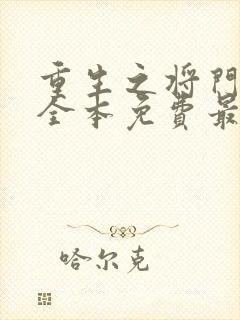 重生之将门
全本免费最
哈尔克